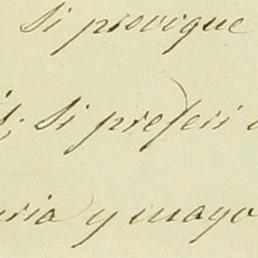 Si provique
Si preferi
y mayo